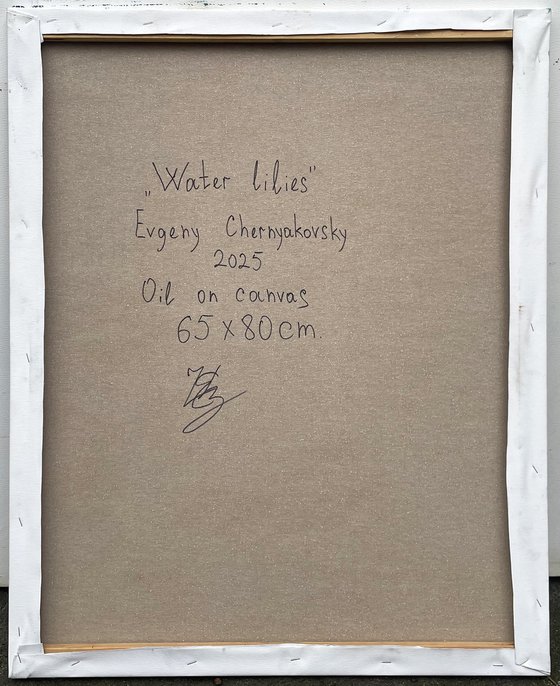 „Water lilies"
Evgeny Chernyakovsky
2025
Oil on canvas
65 x 80 cm.